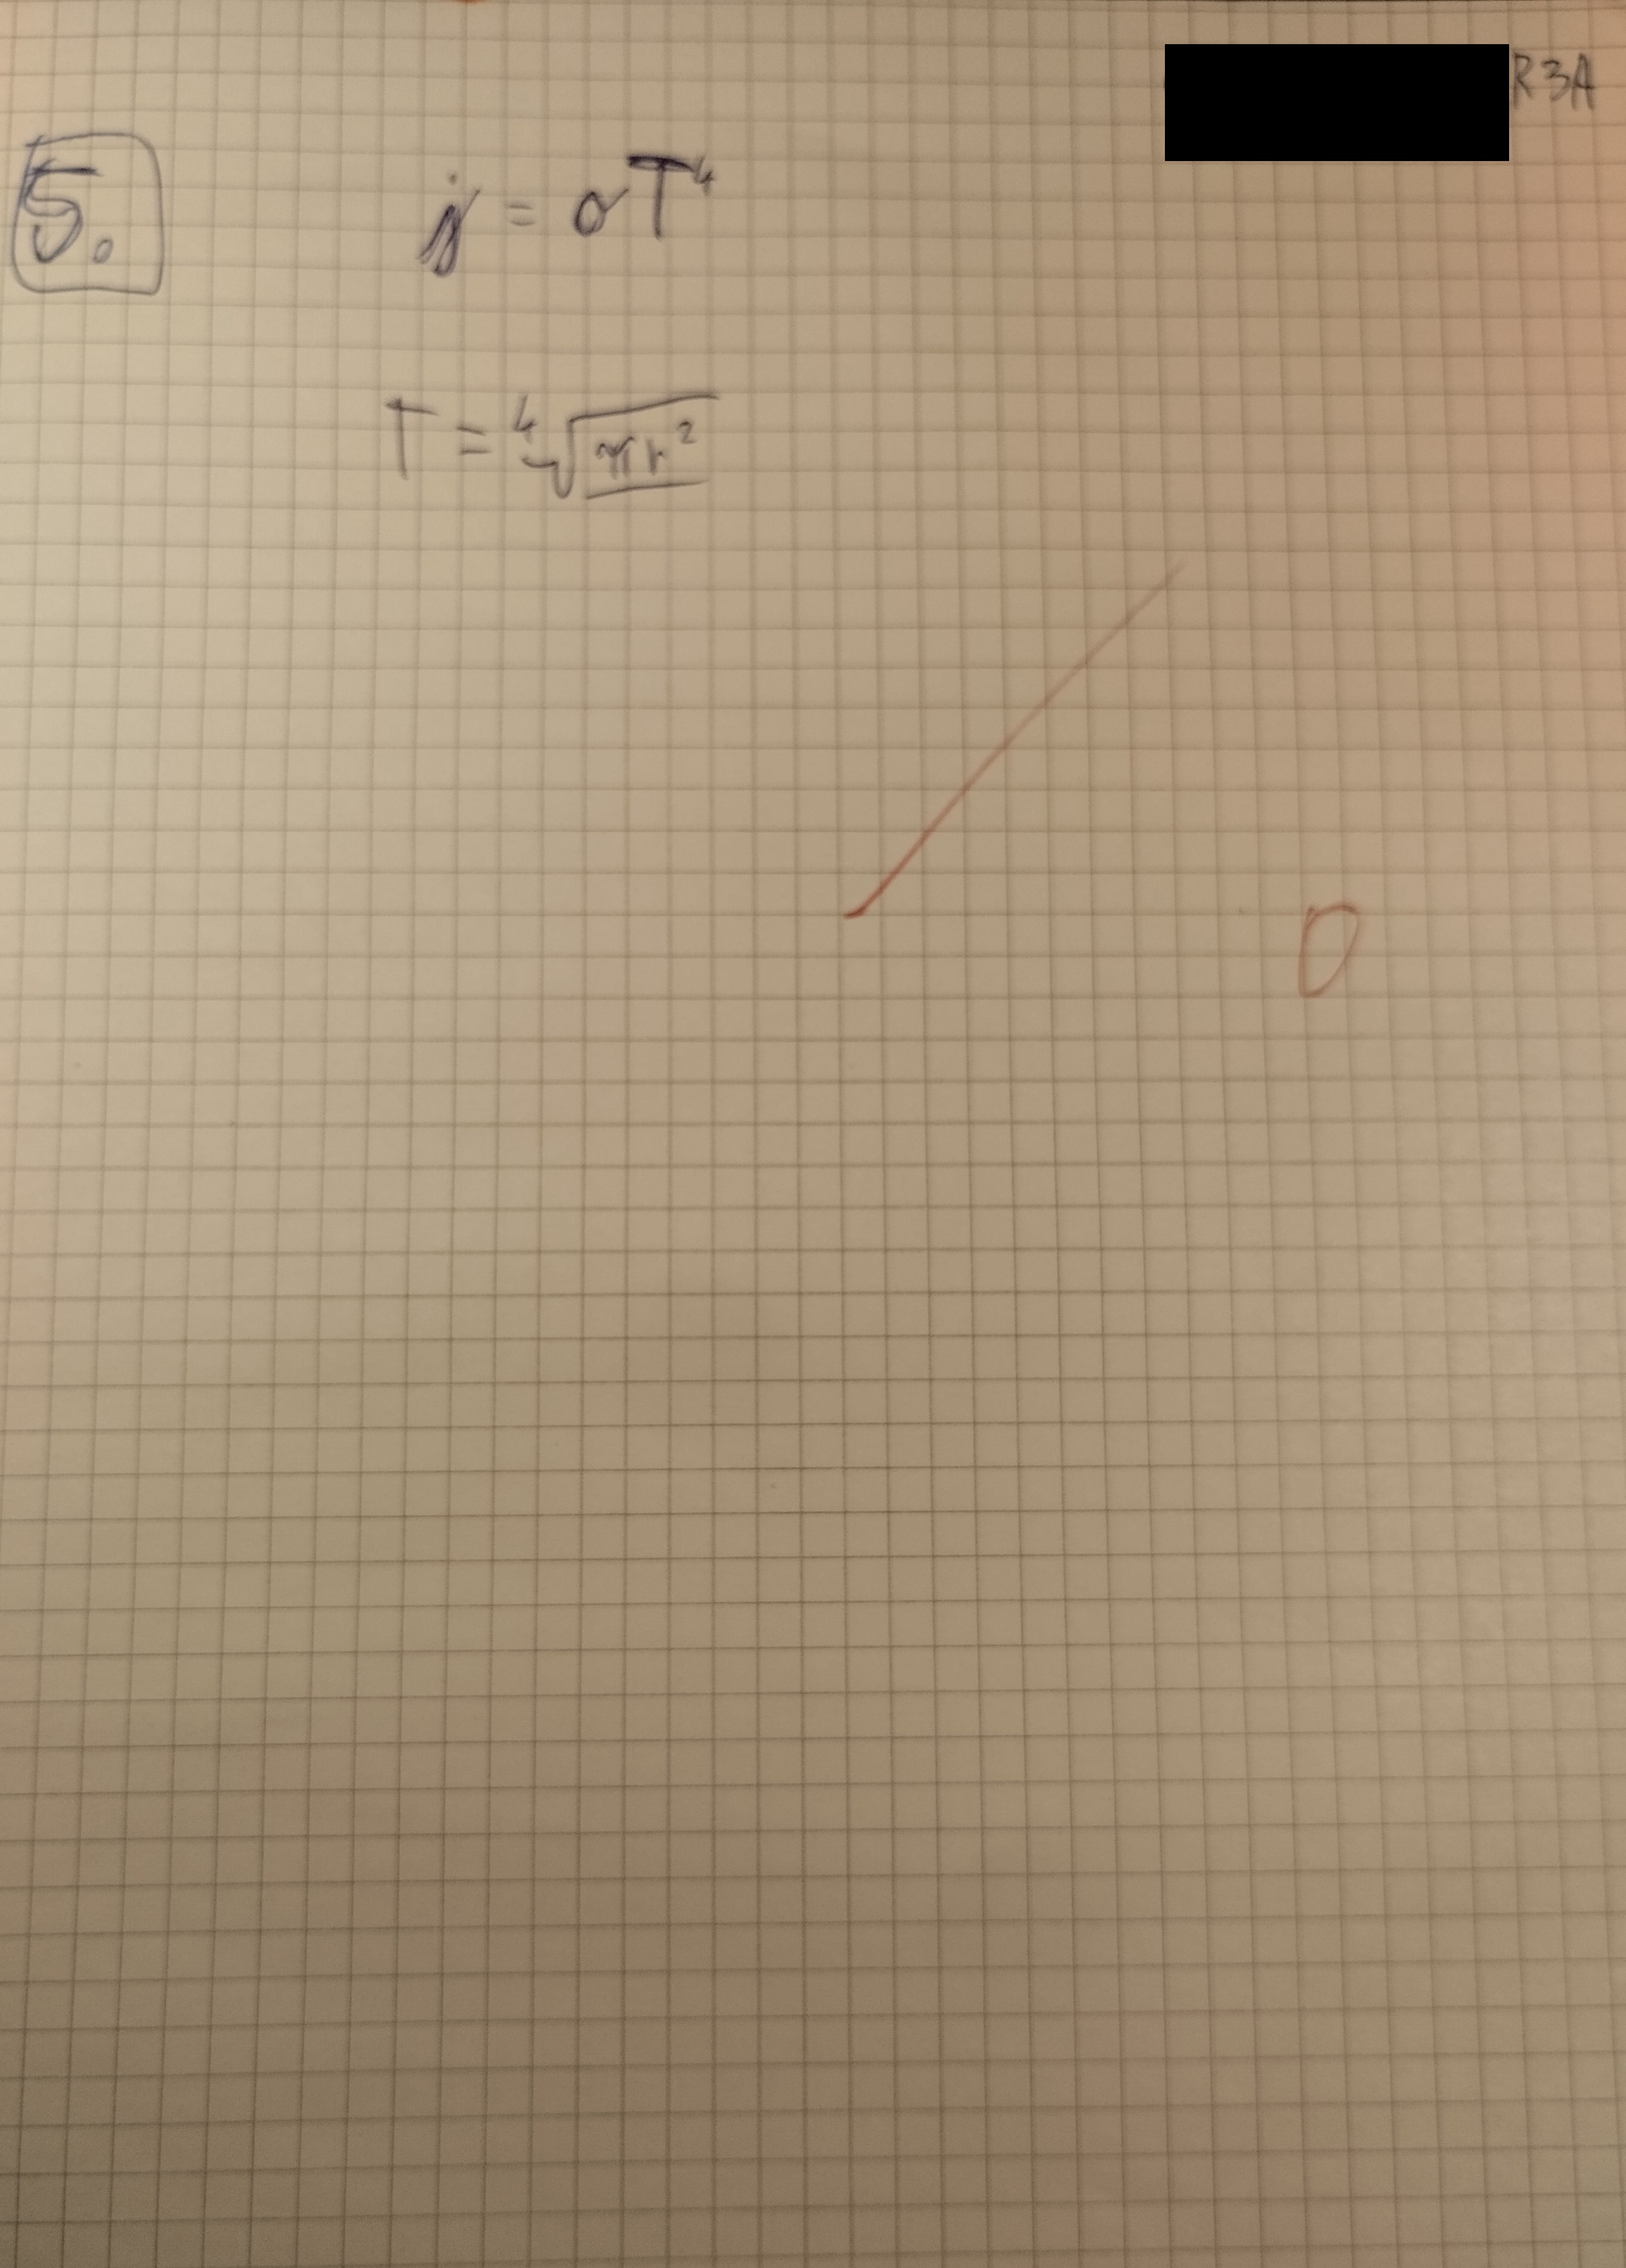 R3A
5.
j = σT⁴
T = ⁴√πr²
0